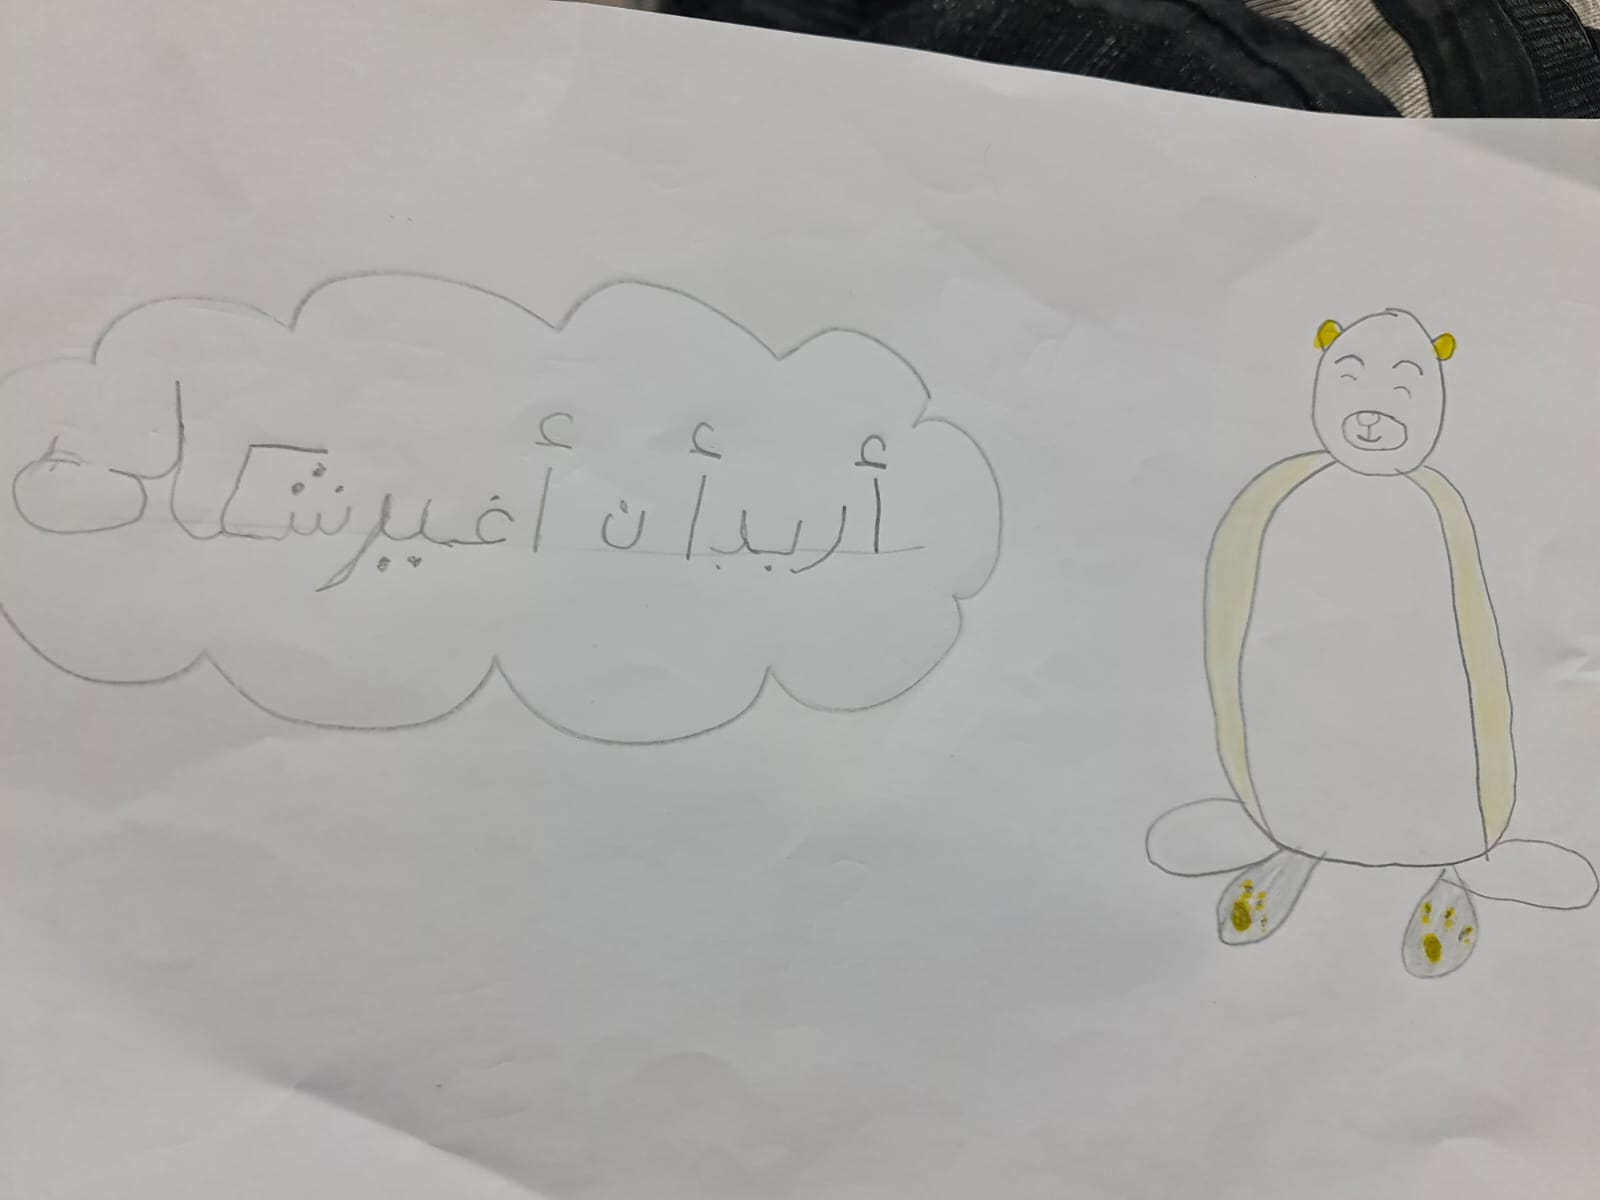 أريد أن أغير شكلي